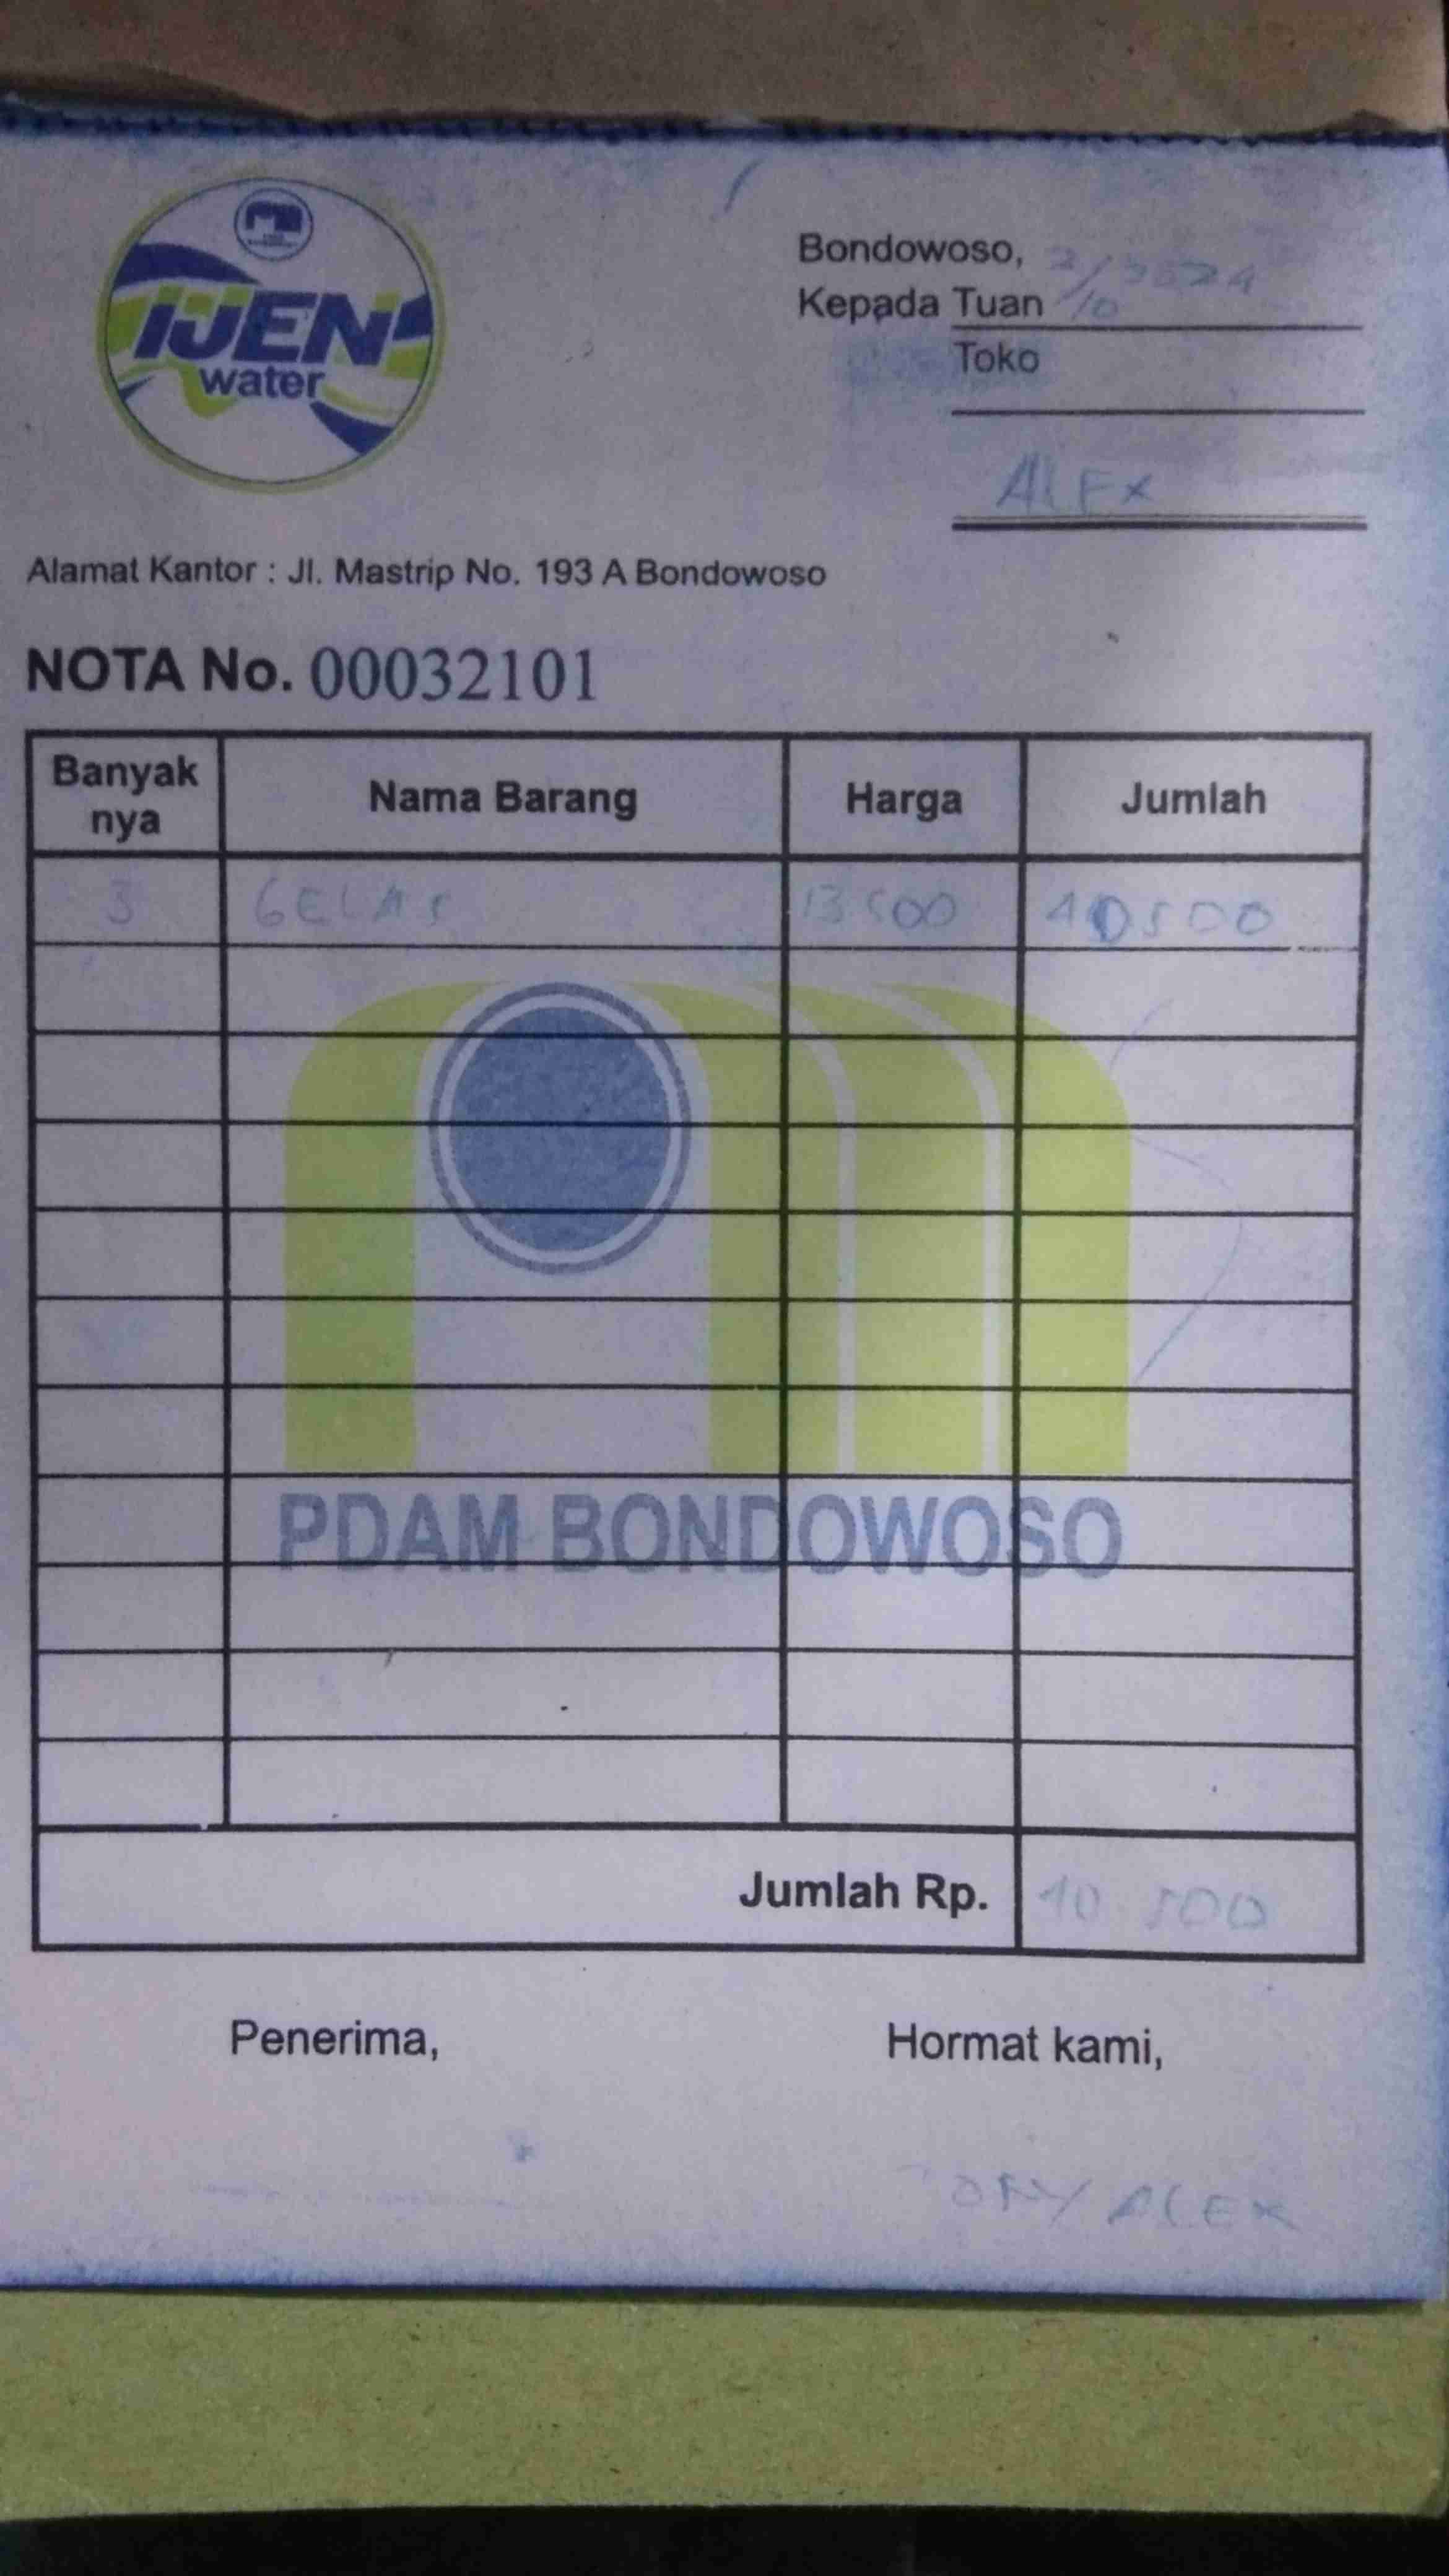 IJEN
water
Bondowoso, 2/10 2024
Kepada Tuan
Toko
ALEX
Alamat Kantor : Jl. Mastrip No. 193 A Bondowoso
NOTA No. 00032101
Banyak nya Nama Barang Harga Jumlah
3 GELAS 13500 40500
PDAM BONDOWOSO
Jumlah Rp. 40.500
Penerima, Hormat kami,
ALEX